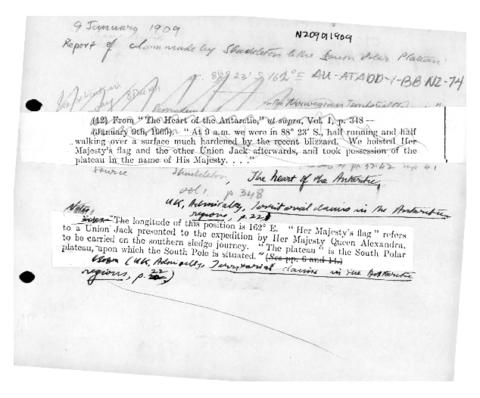 9 January 1909
N20901909
Report of claim made by Shackleton to the South Polar Plateau.
88° 23' S 162° E AU-ATADD-1-BB NZ-74
(12) From "The Heart of the Antarctic," ut supra, Vol. I, p. 348—
(January 9th, 1909). "At 9 a.m. we were in 88° 23' S., half running and half
walking over a surface much hardened by the recent blizzard. We hoisted Her
Majesty's flag and the other Union Jack afterwards, and took possession of the
plateau in the name of His Majesty. . . ."
Source Shackleton, The Heart of the Antarctic,
vol 1 p. 348
UK, Admiralty, Territorial claims in the Antarctic
regions, p. 22
Notes
The longitude of this position is 162° E. "Her Majesty's flag" refers
to a Union Jack presented to the expedition by Her Majesty Queen Alexandra,
to be carried on the southern sledge journey. "The plateau" is the South Polar
plateau, upon which the South Pole is situated. (See pp. 6 and 14.)
(UK, Admiralty, Territorial claims in the Antarctic
regions, p. 22)